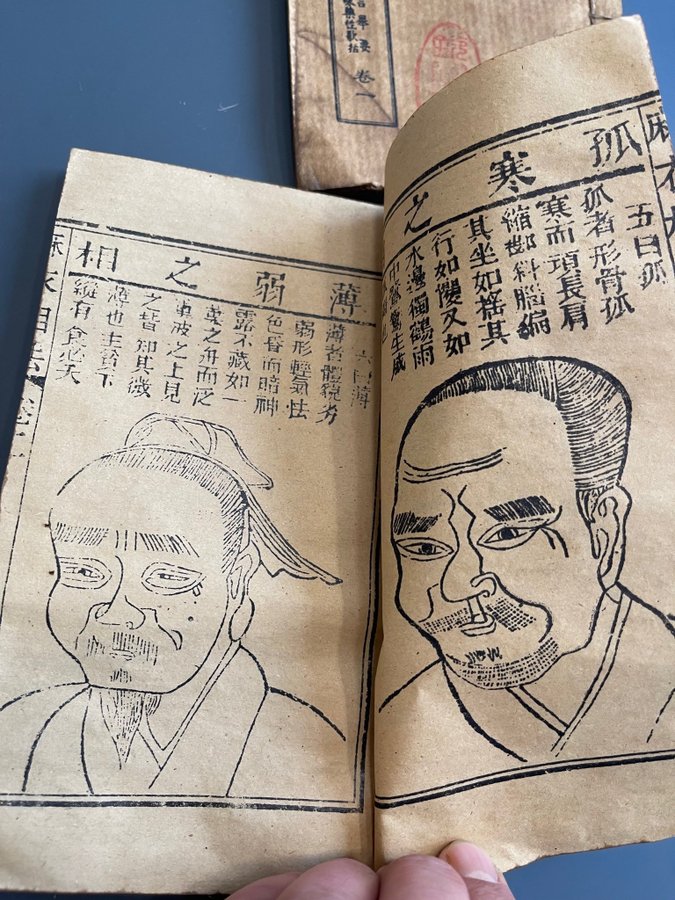 藥性歌括 卷一
孤寒之
五曰孤
孤者形骨孤
寒而項長肩
縮脚斜腦偏
其坐如搖其
行如攫又如
水邊獨鶴雨
中鷺鷥生成
薄弱之相
六曰薄
薄者體貌劣
弱形輕氣怯
色昏而暗神
露不藏如一
葉之舟而泛
重波之上見
之皆知其微
薄也主貧下
縱有食必夭